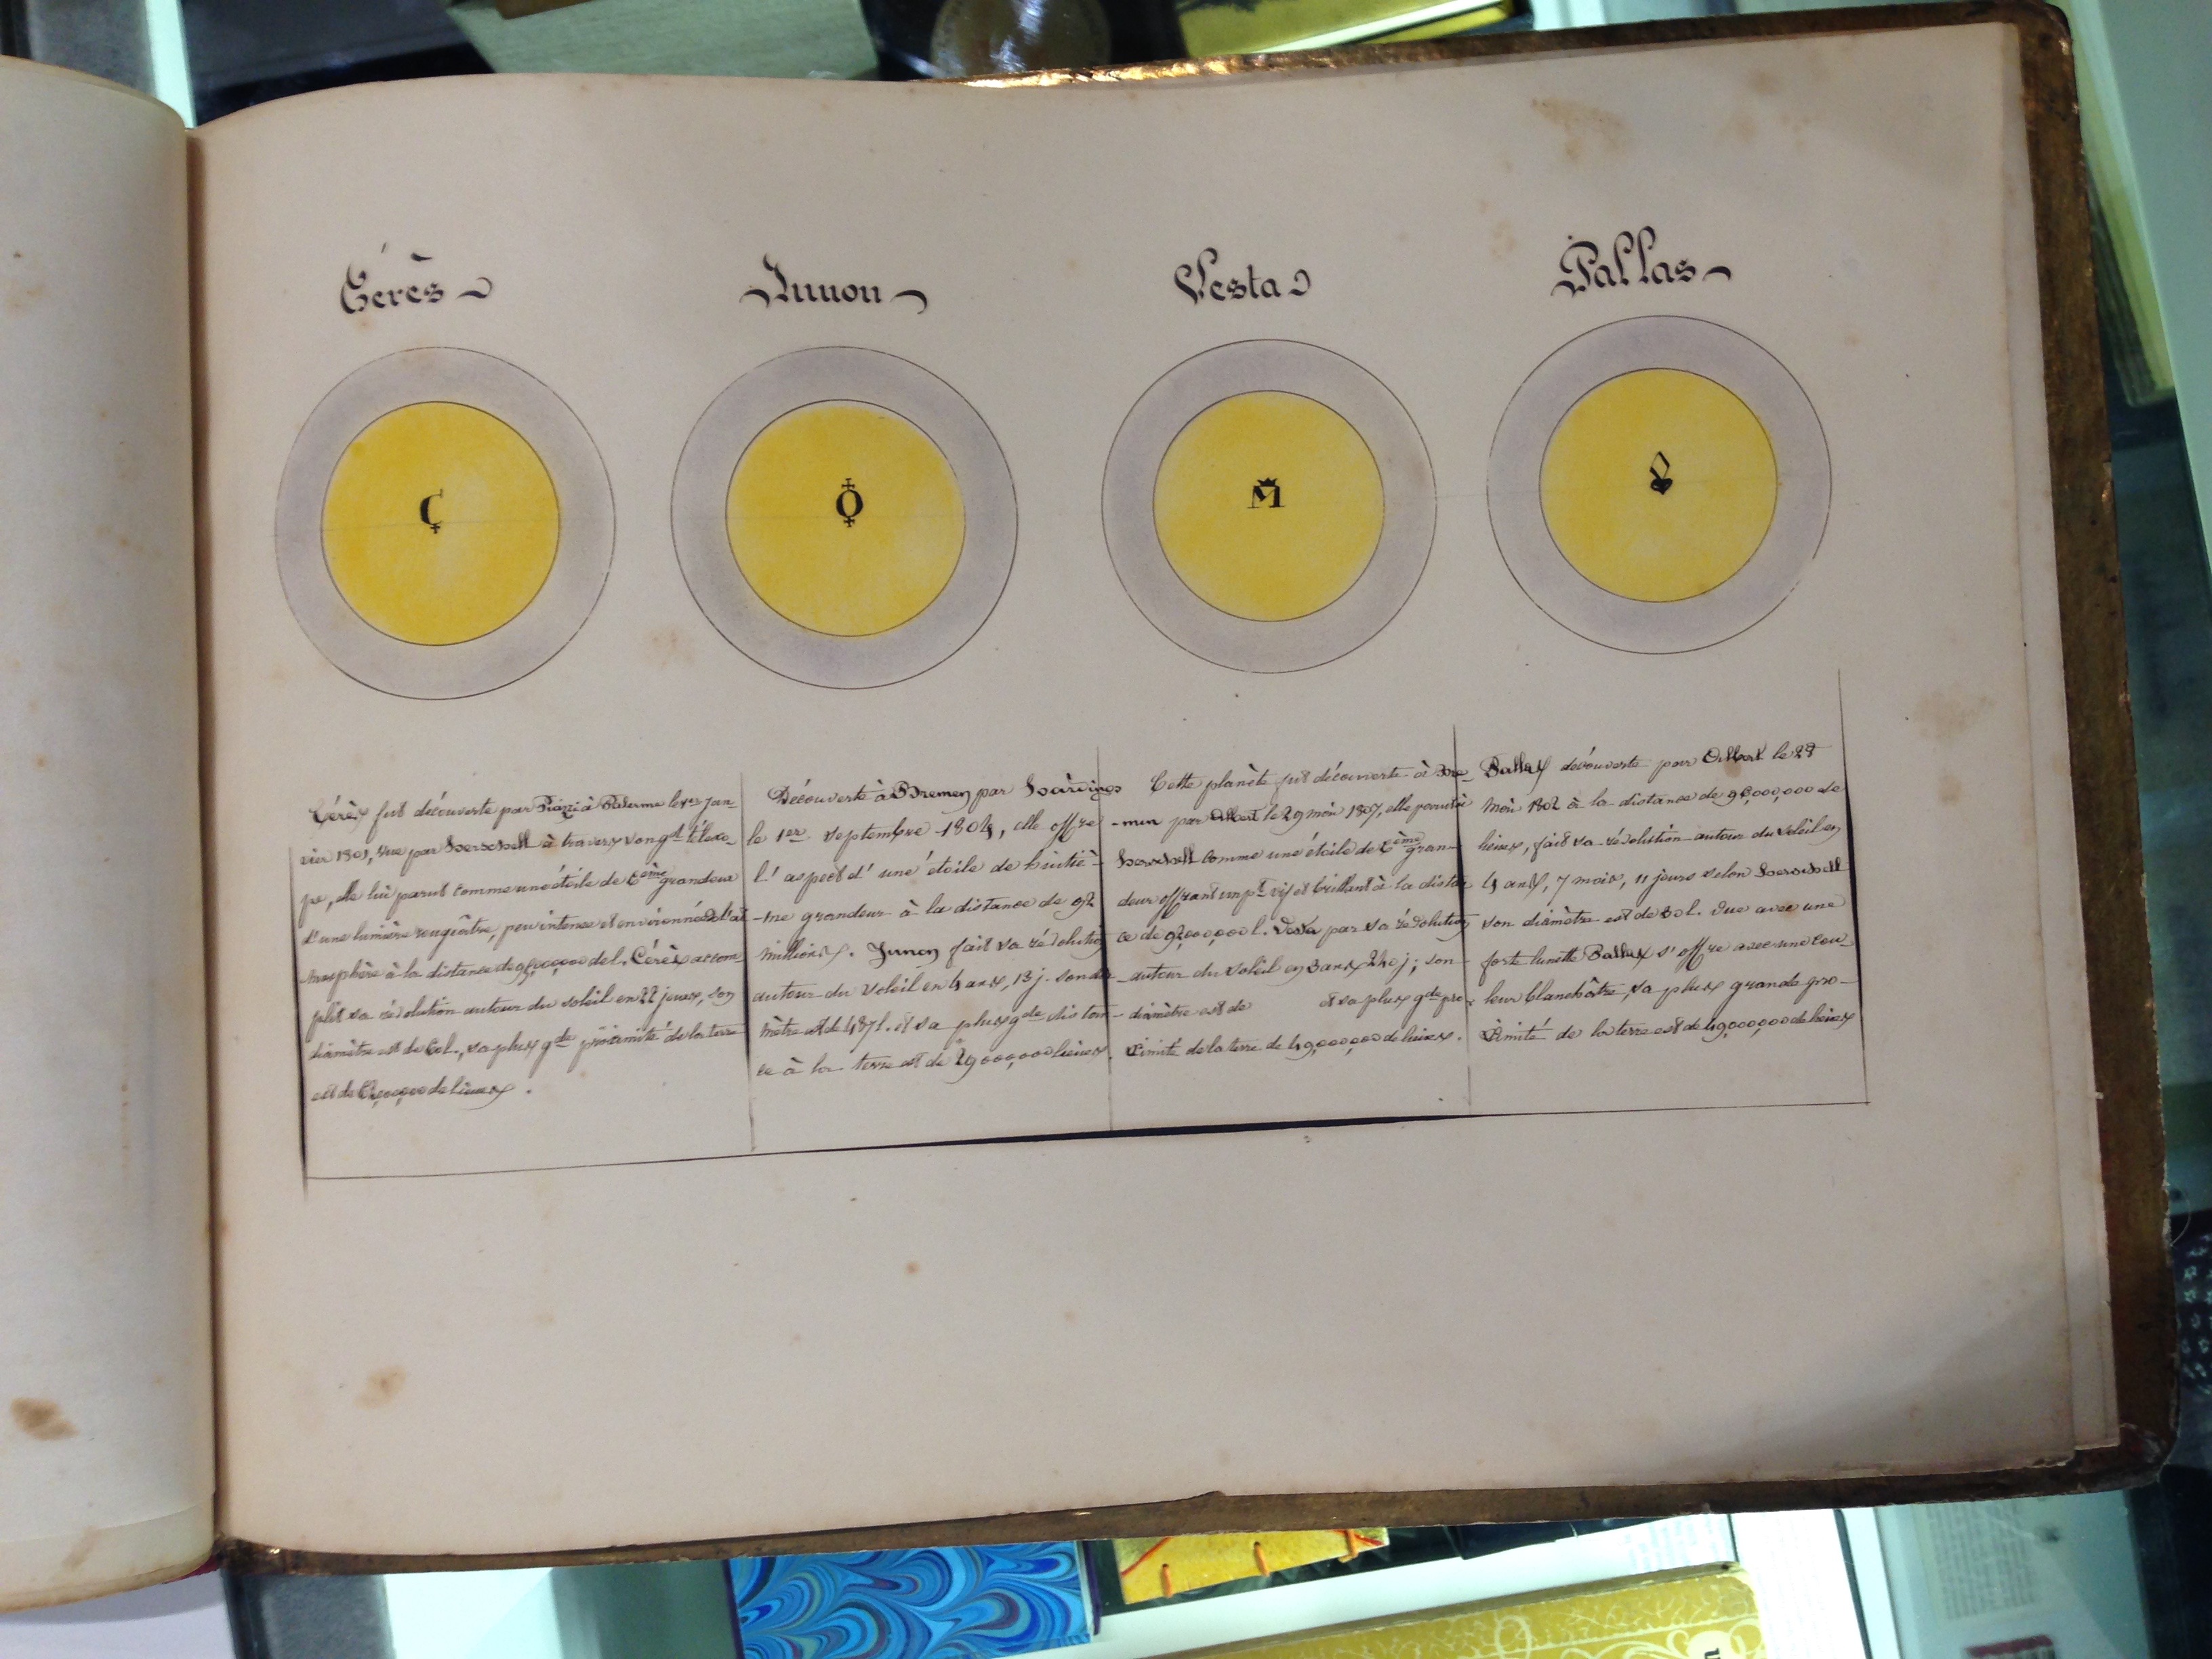 Cérès
Junon
Vesta
Pallas
Ç
M
Cérès fut découverte par Piazzi à Palerme le 1er Jan-
vier 1801, vue par Herschell à travers son gd télesco-
pe, elle lui parut comme une étoile de 6ème grandeur
d'une lumière rougeâtre, peu intense et environnée d'at
mosphère à la distance de l. Cérès accom-
plit sa révolution autour du soleil en 22 jours, son
diamètre est de l., sa plus gde proximité de la terre
est de de lieues.
Découverte à Bremen par Hardinge
le 1er Septembre 1804, elle offre
l'aspect d'une étoile de huitiè-
-me grandeur à la distance de 92
millions. Junon fait sa révolution
autour du Soleil en 4 ans, 13 j. son dia-
mètre est de 487 l. et sa plus gde distan-
ce à la terre est de 29000,000 lieues.
Cette planète fut découverte à Bre-
-men par Olbert le 29 mai 1807, elle parut à
Herschell comme une étoile de 6ème gran-
deur offrant un pt vif et brillant à la distan
ce de 92,000,000 l. Vesta par sa révolution
autour du Soleil en 3 ans 240 j; son
diamètre est de et sa plus gde pro-
ximité de la terre de 49,000,000 de lieues.
Pallas découverte par Olbert le 28
Mai 1802 à la distance de 96,000,000 de
lieues, fait sa révolution autour du Soleil en
4 ans, 7 mois, 11 jours selon Herschell
son diamètre est de 30 l. Vue avec une
forte lunette Pallas s'offre avec une cou
leur blanchâtre, sa plus grande pro-
ximité de la terre est de 49,000,000 de lieues